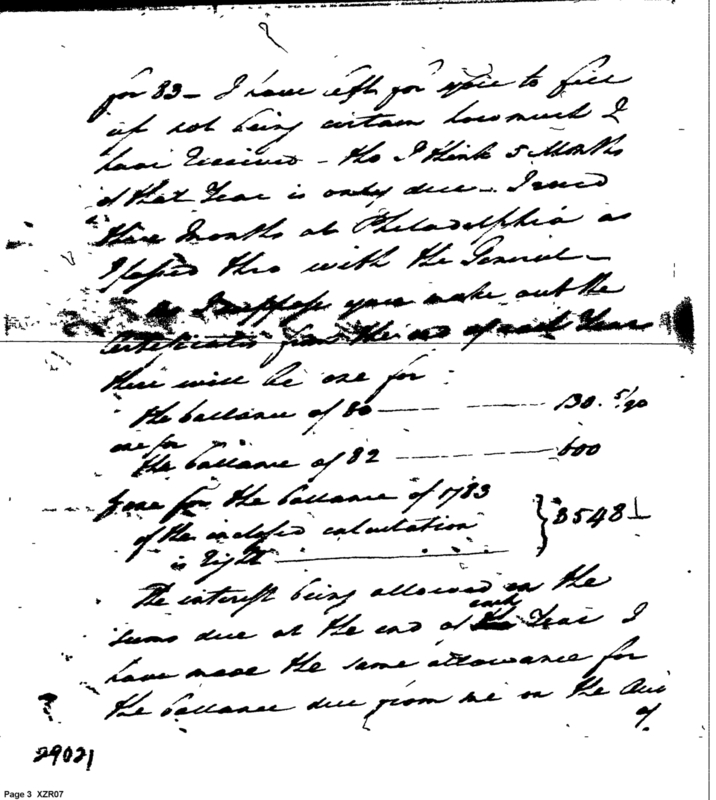 for 83 – I have left for you to fill
up not being certain how much I
have Received – tho I think 5 Months
of that Year is only due –
three Months at Philadelphia as
I passed thro with the General –
As I suppose you make out the
Certificates from the end of each Year
there will be one for
the ballance of 80 — — — 130. 5/90
one for
the ballance of 82 — — — 600
& one for the ballance of 1783
of the inclosed calculation } 3548
is Right —
The interest being allowed on the
sums due at the end of each Year I
have made the same allowance for
the ballance due from me on the
of
29021
Page 3 XZR07